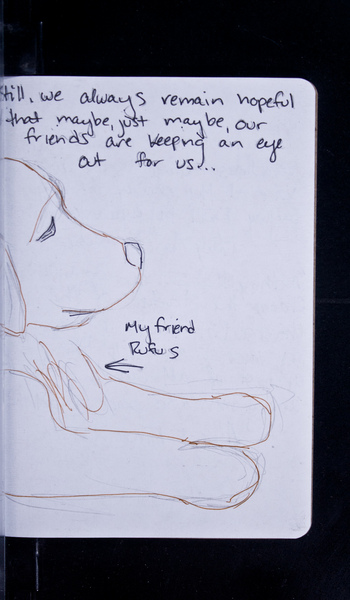 Still, we always remain hopeful
that maybe, just maybe, our
friends are keeping an eye
out for us...
My friend
Rufus